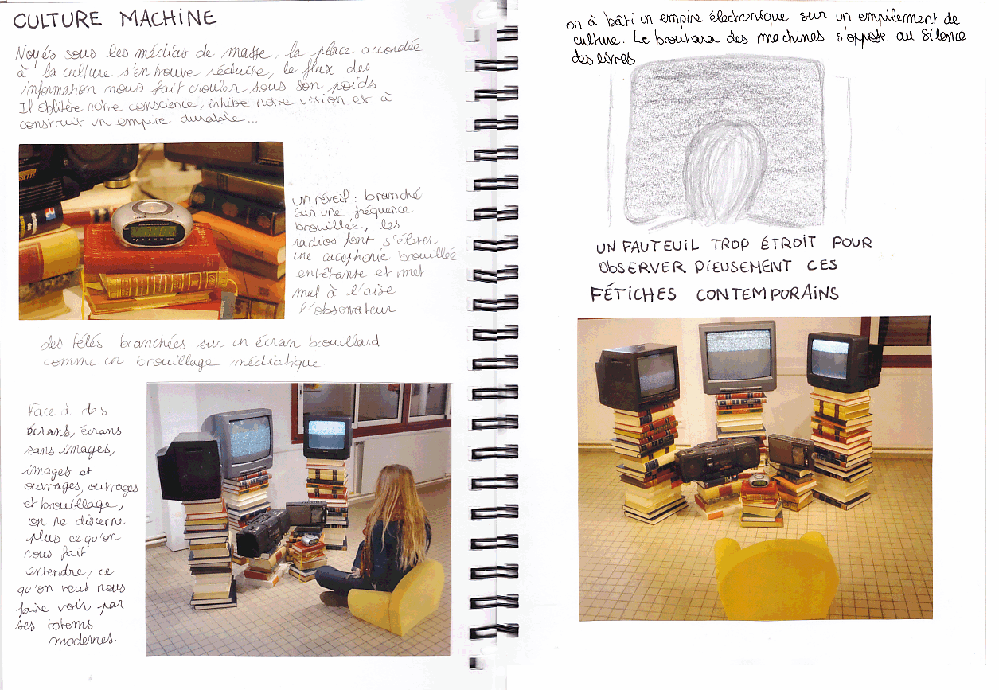 CULTURE MACHINE
Noyés sous les médias de masse, la place accordée
à la culture s'en trouve réduite, le flux des
information nous fait crouler sous son poids
Il oblitère notre conscience, inhibe notre vision et à
construit un empire durable...
un réveil : branché
sur une fréquence
brouillée, les
radios font s'élever
une cacophonie brouillée
entêtante et met
mal à l'aise
l'observateur
des télés branchées sur un écran brouillard
comme un brouillage médiatique
Face à des
écrans, écrans
sans images,
images et
ouvrages, ouvrages
et brouillage,
on ne discerne
plus ce qu'on
nous fait
entendre, ce
qu'on veut nous
faire voir, par
ces totems
modernes.
on à bâti un empire électronique sur un empierrement de
culture. Le brouhaha des machines s'oppose au silence
des livres
UN FAUTEUIL TROP ÉTROIT POUR
OBSERVER PIEUSEMENT CES
FÉTICHES CONTEMPORAINS